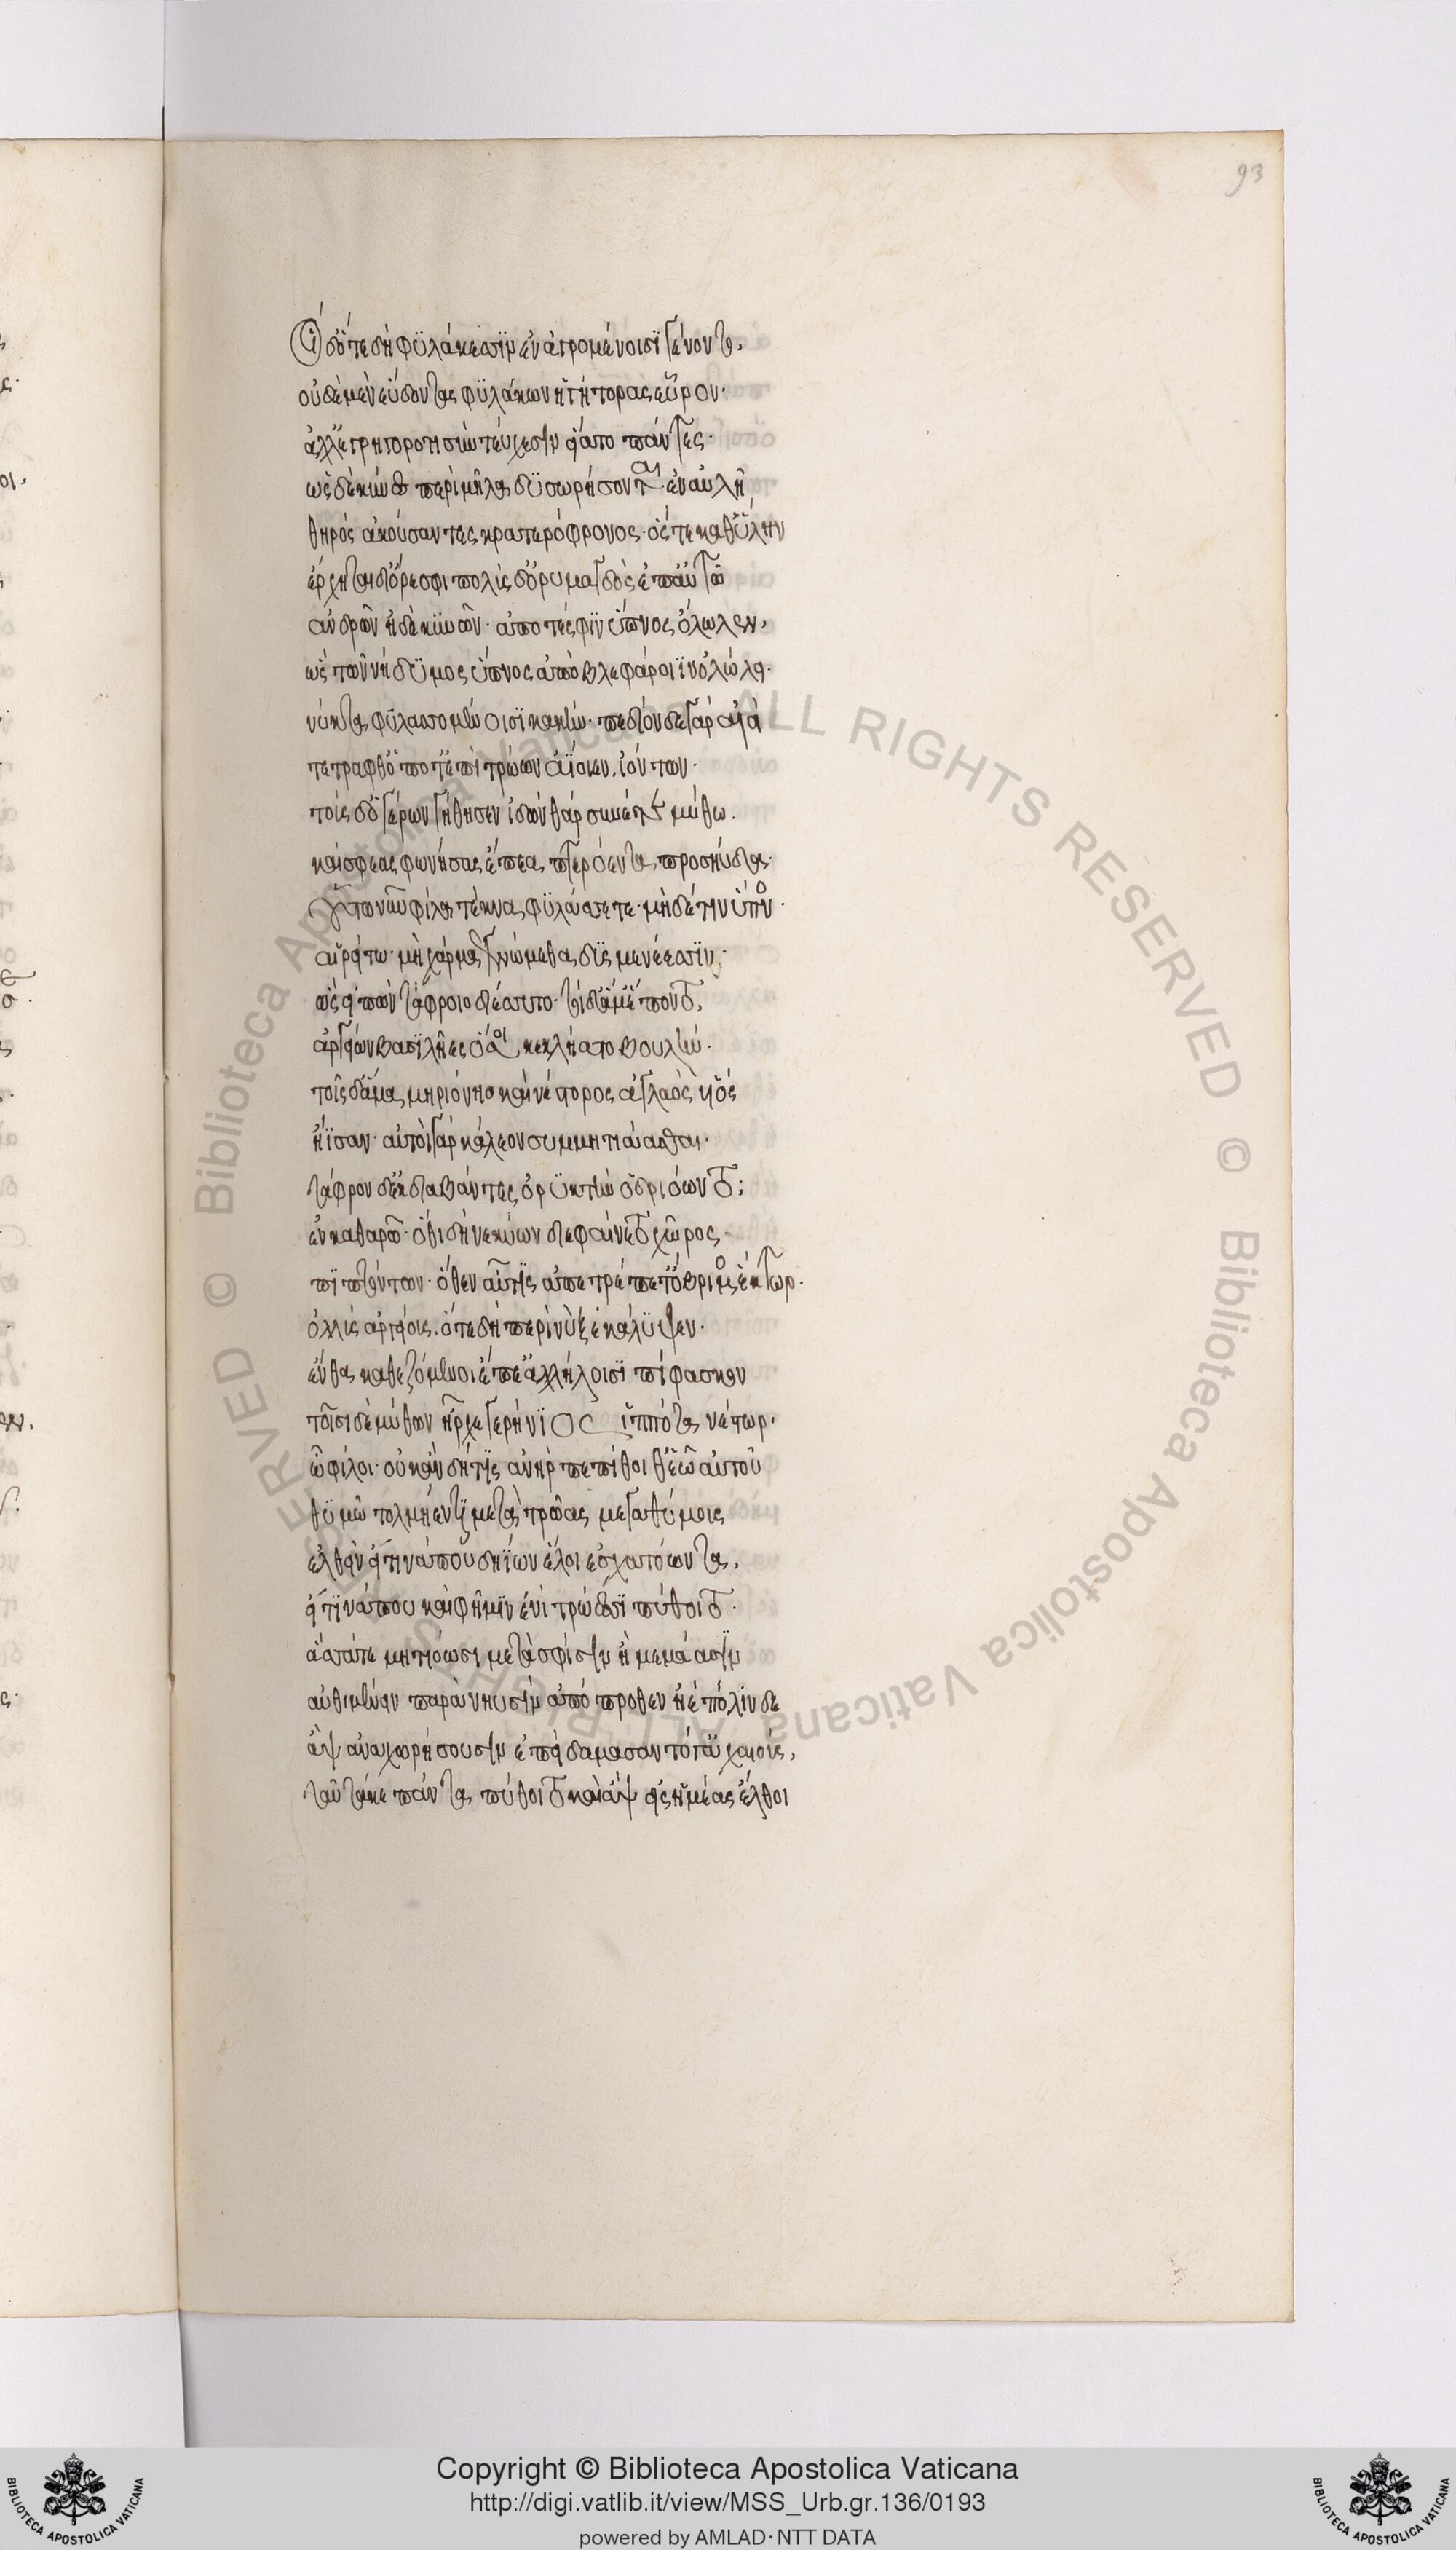 93
Οἱ δ' ὅτε δὴ φϋλάκεσσϊν ἐν ἀγρομένοισϊ γένοντο,
οὐδὲ μὲν εὕδοντας φϋλάκων ἡγήτορας εὗρον·
ἀλλ' ἐγρηγορτὶ σὺν τεύχεσιν εἵατο πάντες·
ὡς δὲ κύνες περὶ μῆλα δϋσωρήσονται ἐν αὐλῆ
θηρὸς ἀκούσαντες κρατερόφρονος· ὅς τε καθ' ὕλην
ἔρχηται δι' ὄρεσφι πολὺς δ' ὀρυμαγδὸς ἐπ' αὐτῶ
ἀνδρῶν ἠδὲ κϋνῶν· ἀπό τέ σφϊν ὕπνος ὄλωλεν,
ὡς τῶν νήδϋμος ὕπνος ἀπὸ βλεφάροιϊν ὀλώλει·
νύκτα φϋλασσομένοισϊ κακήν· πεδίον δὲ γὰρ αἰεὶ
τετράφθ' ὁππότ' ἐπὶ τρώων ἀΐοιεν ἰόντων·
τοὺς δ' ὁ γέρων γήθησεν ἰδὼν θάρσυνέ τε μύθω.
καί σφεας φωνήσας ἔπεα πτερόεντα προσηύδα·
οὕτω νῦν φίλα τέκνα φϋλάσσετε· μηδέ τιν' ὕπνος
αἱρείτω· μὴ χάρμα γενώμεθα δϋσμενέεσσϊν·
ὡς εἰπὼν τάφροιο διέσσυτο· τοὶ δ' ἅμ' ἕποντο,
ἀργείων βασϊλῆες ὅσοι κεκλήατο βουλήν·
τοῖς δ' ἅμα μηριόνησ καὶ νέστορος ἀγλαὸς υἱός
ἤϊσαν· αὐτοὶ γὰρ κάλεον συμμητιάασθαι·
τάφρον δ' ἐκδιαβάντες ὀρϋκτὴν ἑδριόωντο;
ἐν καθαρῶ· ὅθι δὴ νεκύων διεφαίνετο χῶρος
πϊπτόντων· ὅθεν αὖτϊς ἀπετράπετ' ὄβριμος ἕκτωρ·
ὀλλὺς ἀργείους. ὅτε δὴ περὶ νὺξ ἐκάλϋψεν·
ἔνθα καθεζόμενοι ἔπε' ἀλλήλοισϊ πίφασκον
τοῖσι δὲ μύθων ἦρχε γερήνϊος ἱππότα νέστωρ·
ὦ φίλοι· οὐκ ἂν δή τϊς ἀνὴρ πεπίθοιθ' ἑῶ αὐτοῦ
θϋμῶ τολμήεντϊ μετὰ τρῶας μεγαθύμους
ἐλθεῖν εἴ τινά που δηΐων ἕλοι ἐσχατόωντα,
εἴ τϊνά που καὶ φῆμϊν ἐνὶ τρώεσσϊ πύθοιτο·
ἅσσά τε μητιόωσι μετὰ σφίσιν ἢ μεμάασϊν
αὖθι μένειν παρὰ νηυσὶν ἀπόπροθεν ἠὲ πόλϊνδε
ἂψ ἀναχωρήσουσιν ἐπεὶ δαμάσαντό γ' ἀχαιούς,
ταῦτά κε πάντα πύθοιτο καὶ ἂψ εἰς ἡμέας ἔλθοι
Copyright © Biblioteca Apostolica Vaticana
http://digi.vatlib.it/view/MSS_Urb.gr.136/0193
powered by AMLAD·NTT DATA